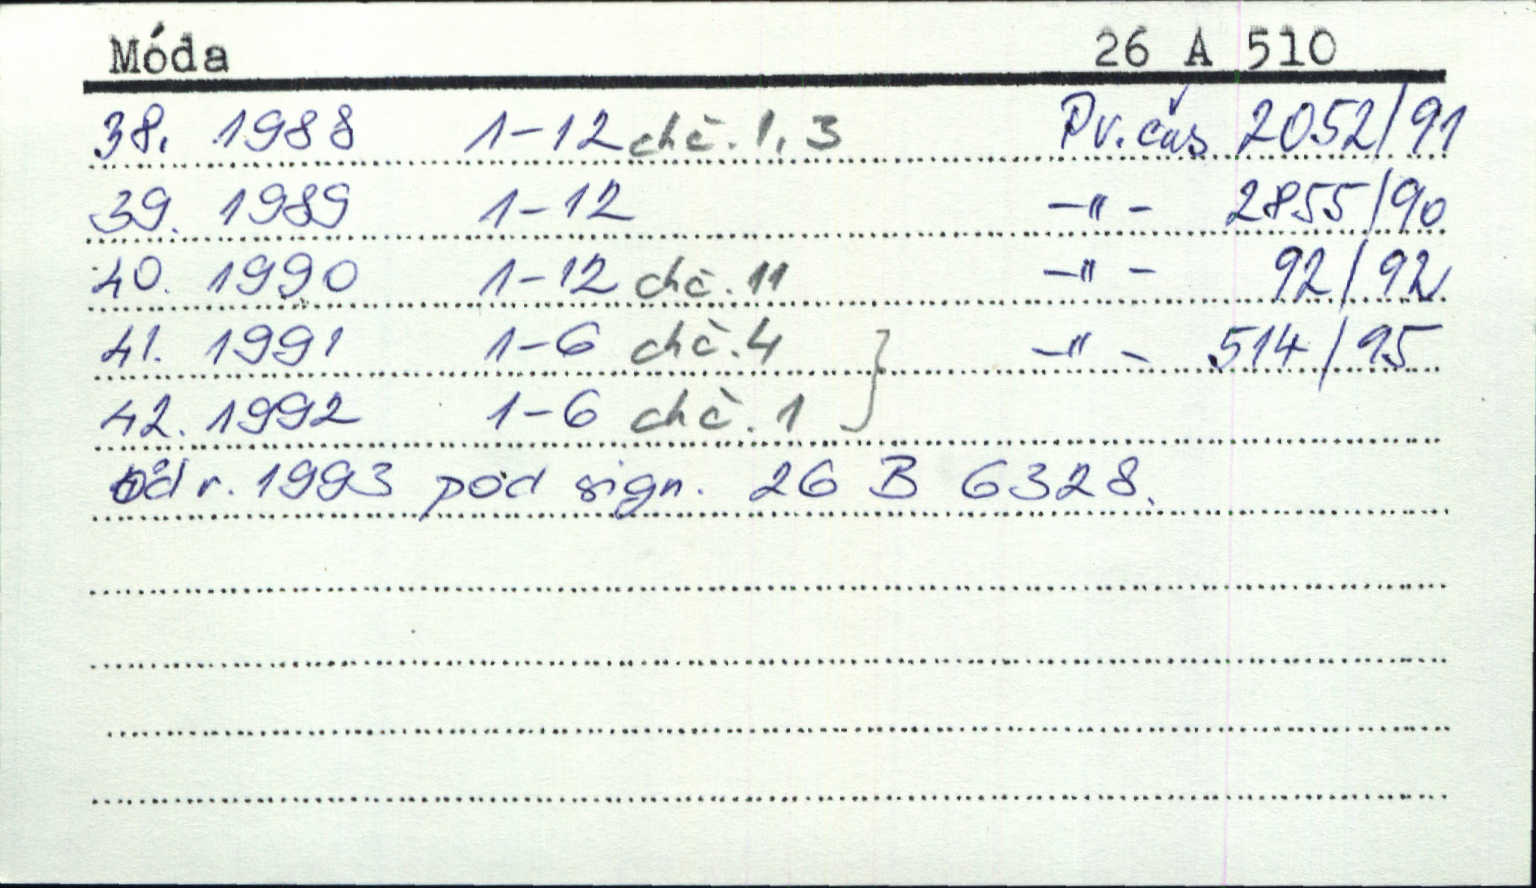 Móda 26 A 510
38. 1988 1-12 chč. 1, 3 Pv. čas 2052/91
39. 1989 1-12 -"- 2855/90
40. 1990 1-12 chč. 11 -"- 92/92
41. 1991 1-6 chč. 4 } -"- 514/95
42. 1992 1-6 chč. 1
od r. 1993 pod sign. 26 B 6328.